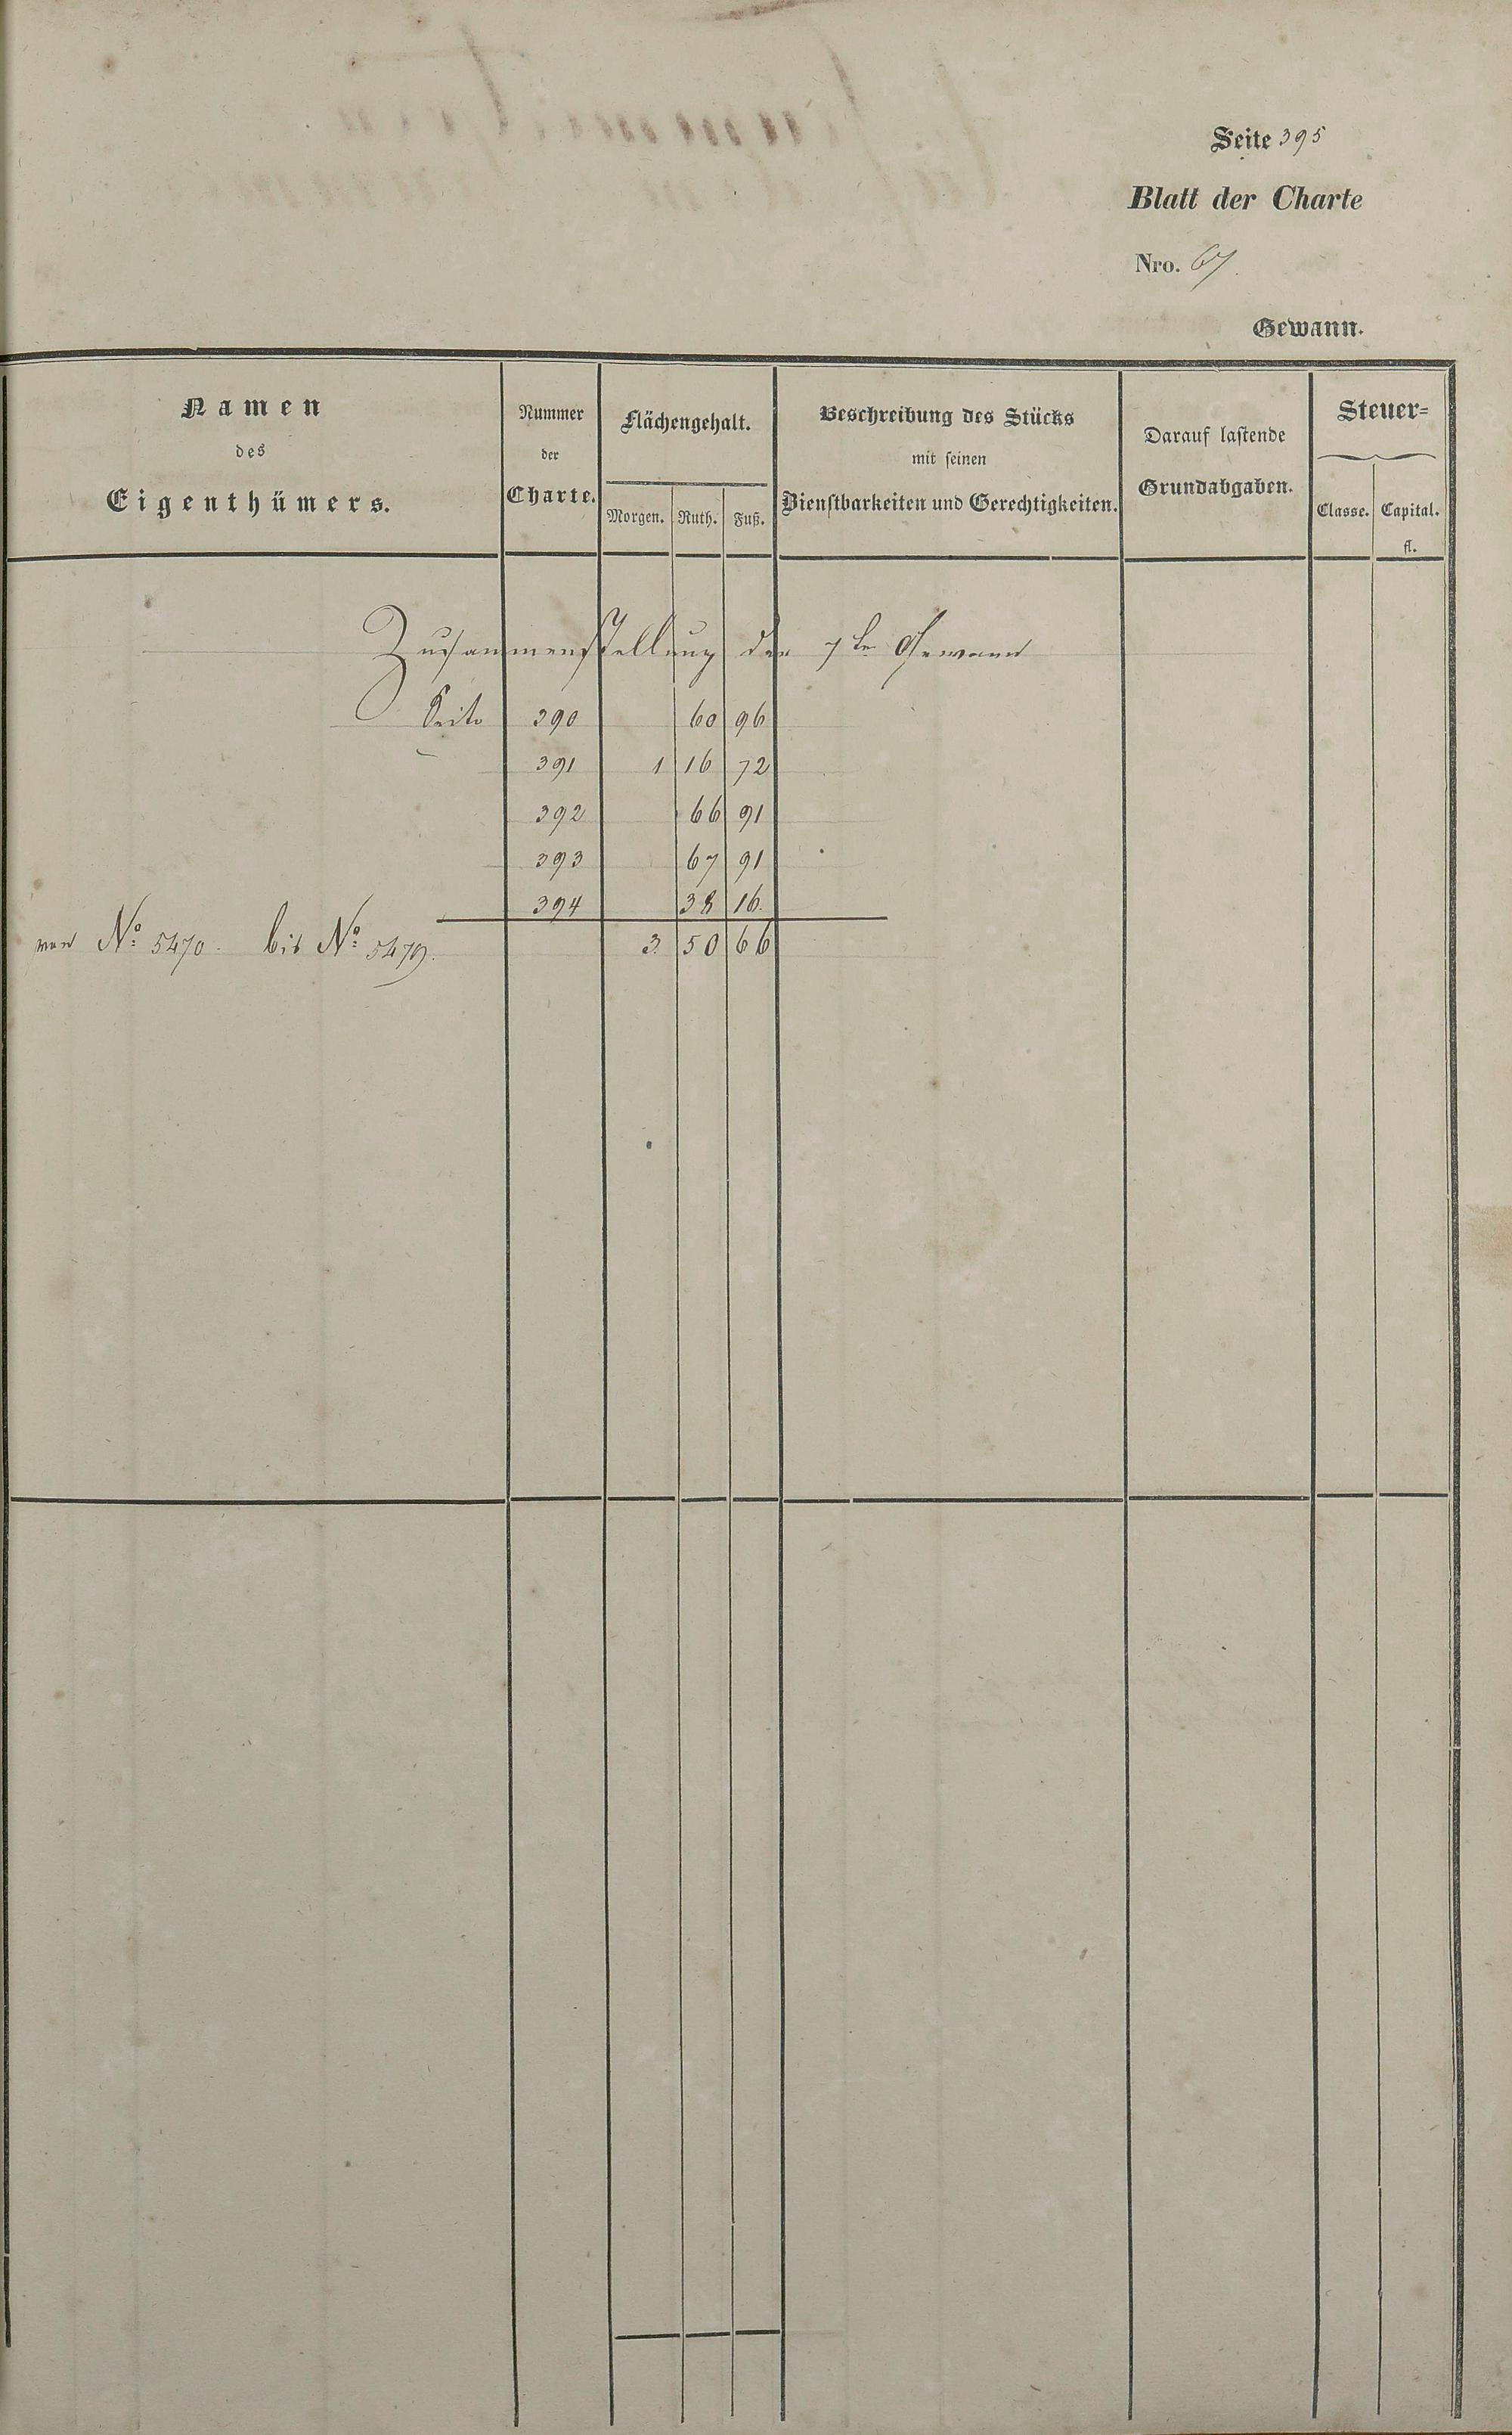 Seite 395
Blatt der Charte
Nro. 67.
Gewann.
Namen
des
Eigenthümers.
Nummer
der
Charte.
Flächengehalt.
Morgen. Ruth. Fuß.
Beschreibung des Stücks
mit seinen
Dienstbarkeiten und Gerechtigkeiten.
Darauf lastende
Grundabgaben.
Steuer=
Classe. Capital.
fl.
Zusammenstellung der 7te Gewann
Seite 390 60 96
391 1 16 72
392 66 91
393 67 91
394 38 16.
von No: 5470. bis No: 5479. 3. 50 66